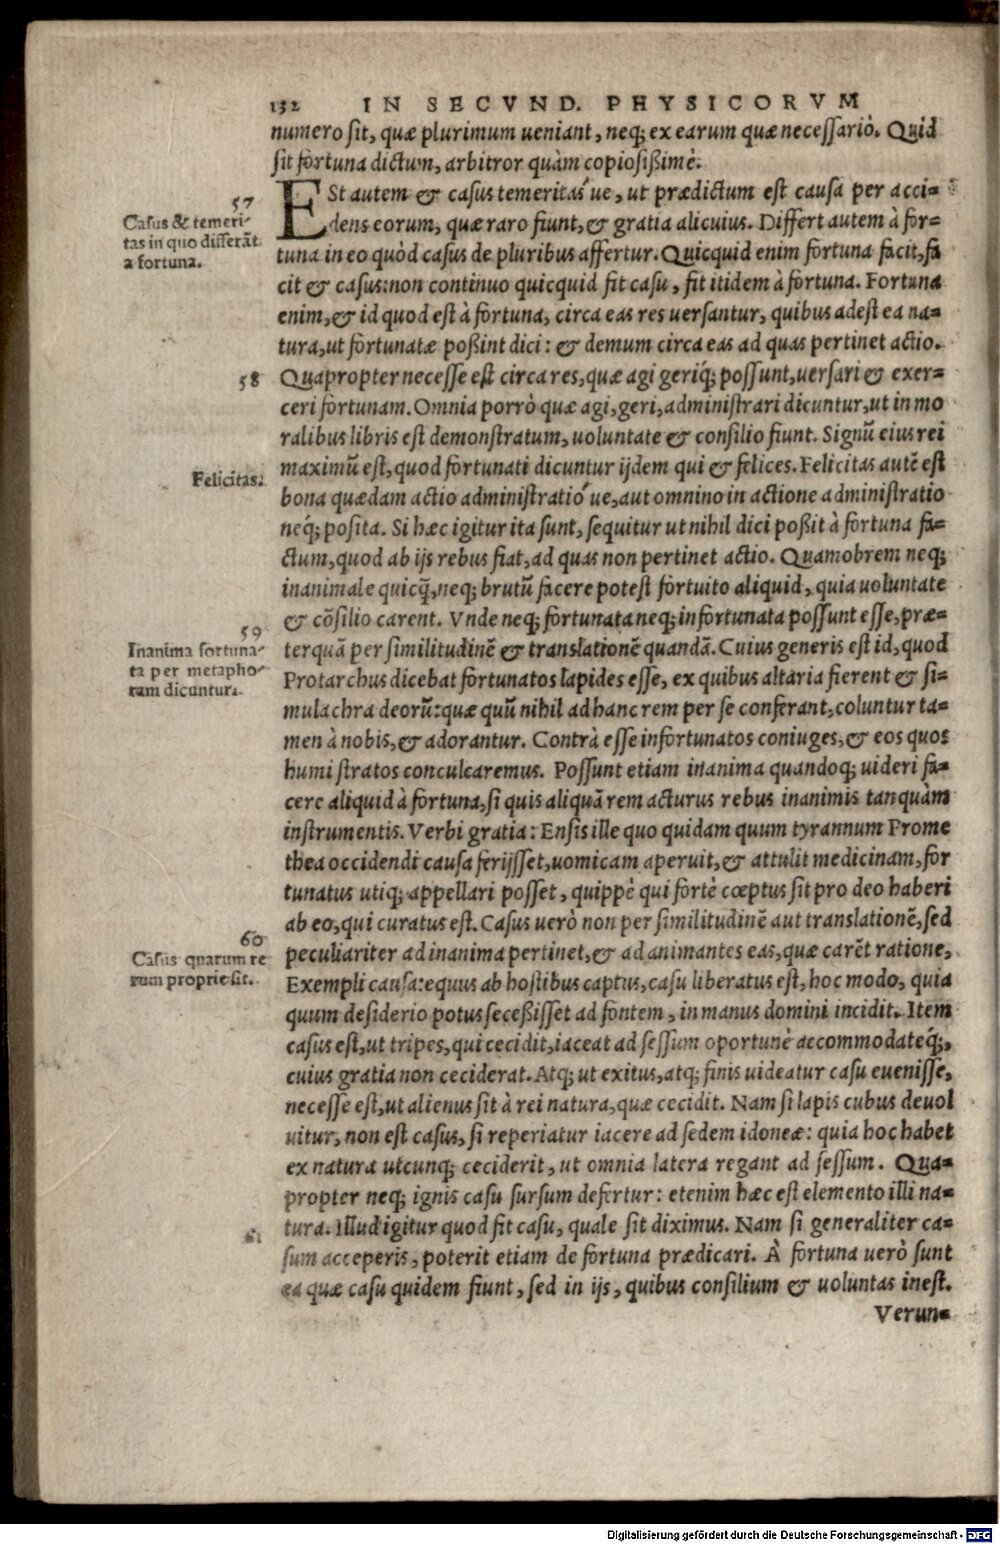 132 IN SECVND. PHYSICORVM
numero sit, quæ plurimum ueniant, neq; ex earum quæ necessariò. Quid
sit fortuna dictum, arbitror quàm copiosißimè.
57
Casus & temeri-
tas in quo differāt
a fortuna.
ESt autem & casus temeritas´ue, ut prædictum est causa per acci=
dens eorum, quæ raro fiunt, & gratia alicuius. Differt autem à for=
tuna in eo quòd casus de pluribus affertur. Quicquid enim fortuna facit, fa
cit & casus: non continuo quicquid fit casu, fit itidem à fortuna. Fortuna
enim, & id quod est à fortuna, circa eas res uersantur, quibus adest ea na=
tura, ut fortunatæ poßint dici: & demum circa eas ad quas pertinet actio.
58
Quapropter necesse est circa res, quæ agi geriq́; possunt, uersari & exer=
ceri fortunam. Omnia porrò quæ agi, geri, administrari dicuntur, ut in mo
ralibus libris est demonstratum, uoluntate & consilio fiunt. Signū eius rei
maximū est, quod fortunati dicuntur ijdem qui & felices. Felicitas autē est
Felicitas.
bona quædam actio administratio´ue, aut omnino in actione administratio
neq́; posita. Si hæc igitur ita sunt, sequitur ut nihil dici poßit à fortuna fa=
ctum, quod ab ijs rebus fiat, ad quas non pertinet actio. Quamobrem neq;
inanimale quicq̄, neq; brutū facere potest fortuito aliquid, quia uoluntate
& cōsilio carent. Vnde neq; fortunata neq; infortunata possunt esse, præ=
59
Inanima fortuna-
ta per metapho-
ram dicuntur.
terquā per similitudinē & translationē quandā. Cuius generis est id, quod
Protarchus dicebat fortunatos lapides esse, ex quibus altaria fierent & si=
mulachra deorū: quæ quū nihil ad hanc rem per se conferant, coluntur ta=
men à nobis, & adorantur. Contrà esse infortunatos coniuges, & eos quos
humi stratos conculcaremus. Possunt etiam inanima quandoq; uideri fa=
cere aliquid à fortuna, si quis aliquā rem acturus rebus inanimis tanquàm
instrumentis. Verbi gratia: Ensis ille quo quidam quum tyrannum Prome
thea occidendi causa ferijsset, uomicam aperuit, & attulit medicinam, for
tunatus utiq; appellari posset, quippè qui fortè cœptus sit pro deo haberi
ab eo, qui curatus est. Casus uerò non per similitudinē aut translationē, sed
60
Casus quarum re
rum proprie sit.
peculiariter ad inanima pertinet, & ad animantes eas, quæ carēt ratione,
Exempli causa: equus ab hostibus captus, casu liberatus est, hoc modo, quia
quum desiderio potus seceßisset ad fontem, in manus domini incidit. Item
casus est, ut tripes, qui cecidit, iaceat ad sessum oportunè accommodateq́;,
cuius gratia non ceciderat. Atq; ut exitus, atq; finis uideatur casu euenisse,
necesse est, ut alienus sit à rei natura, quæ cecidit. Nam si lapis cubus deuol
uitur, non est casus, si reperiatur iacere ad sedem idoneæ: quia hoc habet
ex natura utcunq; ceciderit, ut omnia latera regant ad sessum. Qua=
propter neq; ignis casu sursum defertur: etenim hæc est elemento illi na=
tura. Illud igitur quod fit casu, quale sit diximus. Nam si generaliter ca=
61
sum acceperis, poterit etiam de fortuna prædicari. À fortuna uerò sunt
ea quæ casu quidem fiunt, sed in ijs, quibus consilium & uoluntas inest.
Verun=
Digitalisierung gefördert durch die Deutsche Forschungsgemeinschaft - DFG